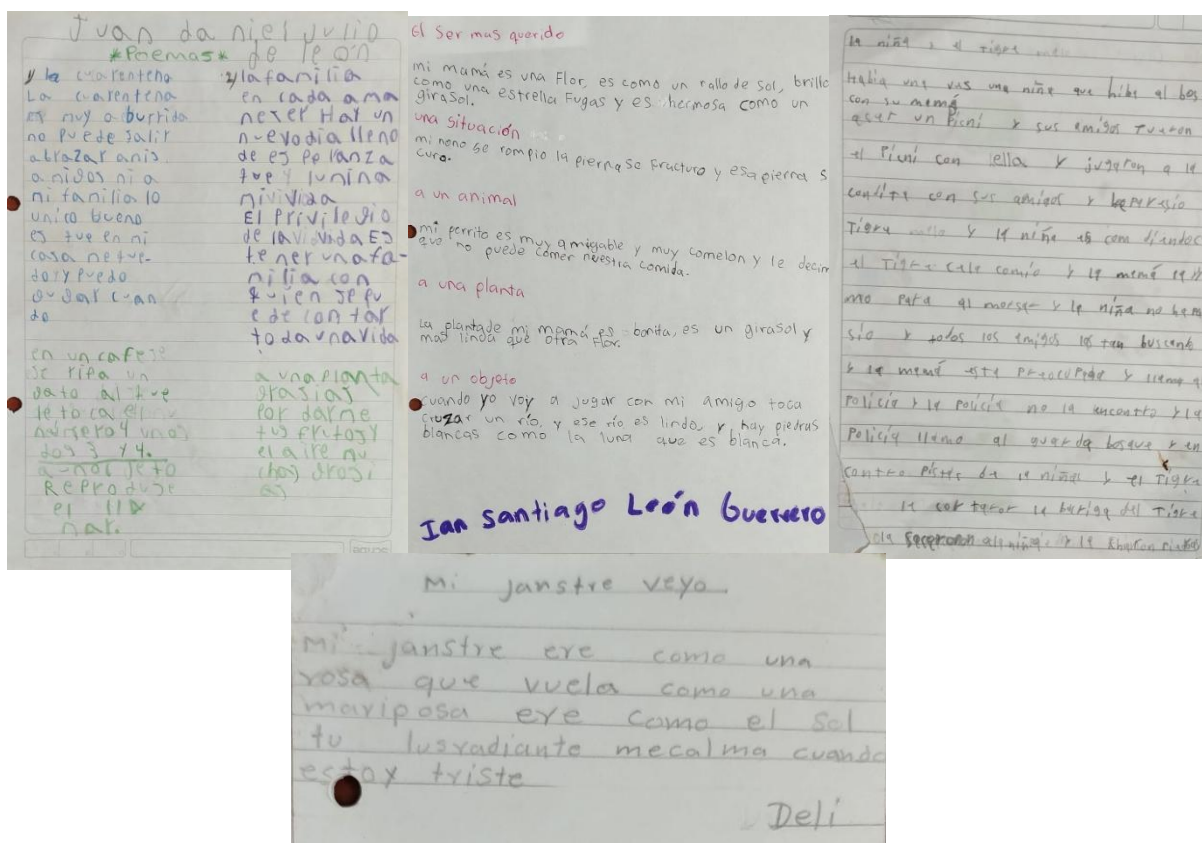 Juan daniel Julio
*Poemas* de león
y la cuarentena
La cuarentena
es muy aburrida
no puede salir
abrazar amis
amigos ni a
mi familia lo
unico bueno
es que en mi
casa me que-
do y puedo
jugar cuan
do
en un cafe
se rifa un
gato al que
le toca el
número y unos
dos 3 y 4.
a-mor se to
Reproduse
el
mar.
y la familia
en cada ama
neser Hay un
nuevo dia lleno
de esperanza
que ylumina
mi vivida
El Privilegio
de la vivida Es
tener una fa-
milia con
quien se pu
ede contar
toda una vida
a una planta
grasias
por darme
tus frutos y
el aire mu
chas grasi
as
El Ser mas querido
mi mamá es una Flor, es como un rallo de sol, brillo
como una estrella Fugas y es hermosa como un
giraSol.
una situación
mi nono se rompio la pierna se fracturo y esa pierna s
curo.
a un animal
mi perrito es muy amigable y muy comelon y le decim
que no puede comer nuestra comida.
a una planta
La planta de mi mamá es bonita, es un giraSol y
mas linda que otra Flor.
a un objeto
cuando yo voy a jugar con mi amigo toca
cruzar un río, y ese río es lindo, y hay piedras
blancas como la luna que es blanca.
Ian Santiago León Guerrero
la niña y el tigre
Habia una vus una niña que hiba al bos
con su memá
aser un Picni y sus amigos fueron
el Picni con ella y jugaron a la
con sus amigos y
Tigre y la niña
el Tigre comio y la memá
mo para al y la niña no
sio y todos los amigos la buscando
y la memá esta preocupada y llamo a
Policía y la Policía no la encontro y la
Policía llamo al guarda bosque y en
contro de la niña y el Tigre
le la barriga del Tigre
a la niña y la
Mi janstre veyo.
Mi janstre ere como una
rosa que vuela como una
mariposa ere como el sol
tu lusradiante mecalma cuando
estoy triste
Deli